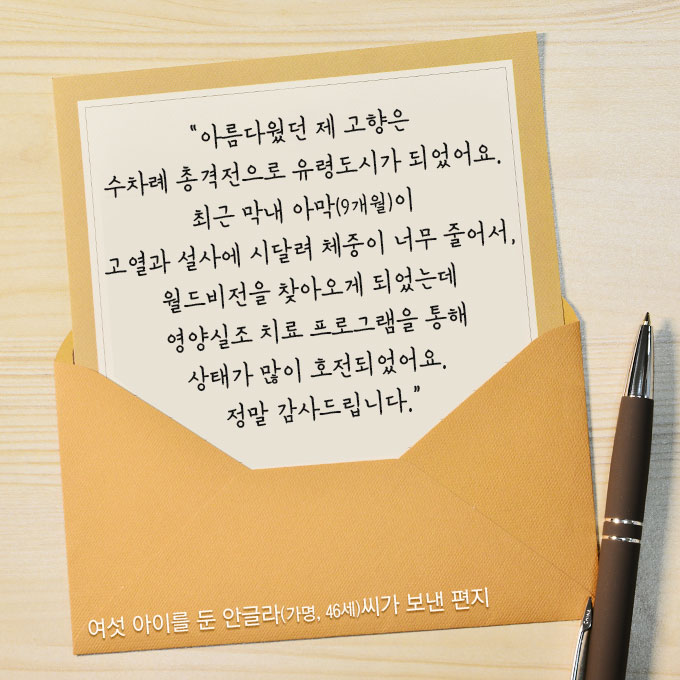 "아름다웠던 제 고향은
수차례 총격전으로 유령도시가 되었어요.
최근 막내 아막(9개월)이
고열과 설사에 시달려 체중이 너무 줄어서,
월드비전을 찾아오게 되었는데
영양실조 치료 프로그램을 통해
상태가 많이 호전되었어요.
정말 감사드립니다."
여섯 아이를 둔 안글라(가명, 46세)씨가 보낸 편지